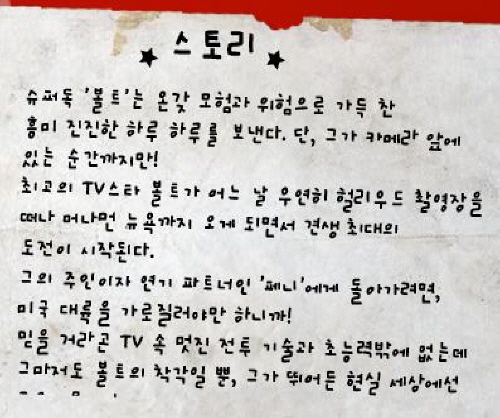 ★ 스토리 ★
슈퍼독 '볼트'는 온갖 모험과 위험으로 가득 찬
흥미 진진한 하루 하루를 보낸다. 단, 그가 카메라 앞에
있는 순간까지만!
최고의 TV스타 볼트가 어느 날 우연히 헐리우드 촬영장을
떠나 머나먼 뉴욕까지 오게 되면서 견생 최대의
도전이 시작된다.
그의 주인이자 연기 파트너인 '페니'에게 돌아가려면,
미국 대륙을 가로질러야만 하니까!
믿을 거라곤 TV 속 멋진 전투 기술과 초능력밖에 없는데
그마저도 볼트의 착각일 뿐, 그가 뛰어든 현실 세상에선